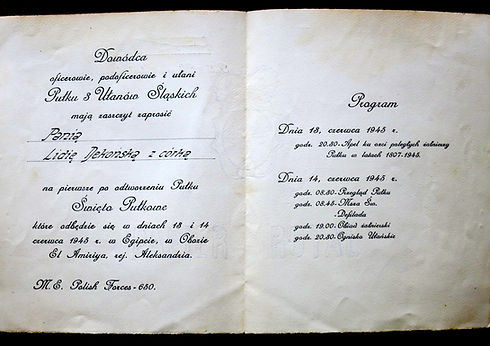 Dowódca
oficerowie, podoficerowie i ułani
Pułku 3 Ułanów Śląskich
mają zaszczyt zaprosić
Panią
Lidię Dekońską z córką
na pierwsze po odtworzeniu Pułku
Święto Pułkowe
które odbędzie się w dniach 13 i 14
czerwca 1945 r. w Egipcie, w Obozie
El Amiriya, rej. Aleksandria.
M. E. Polish Forces - 650.
Program
Dnia 13, czerwca 1945 r.
godz. 20.30 - Apel ku czci poległych żołnierzy
Pułku w latach 1807-1945.
Dnia 14, czerwca 1945 r.
godz. 08.30 - Przegląd Pułku
godz. 08.45 - Msza Św.
- Defilada
godz. 13.00 - Obiad żołnierski
godz. 20.30 - Ognisko Ułańskie